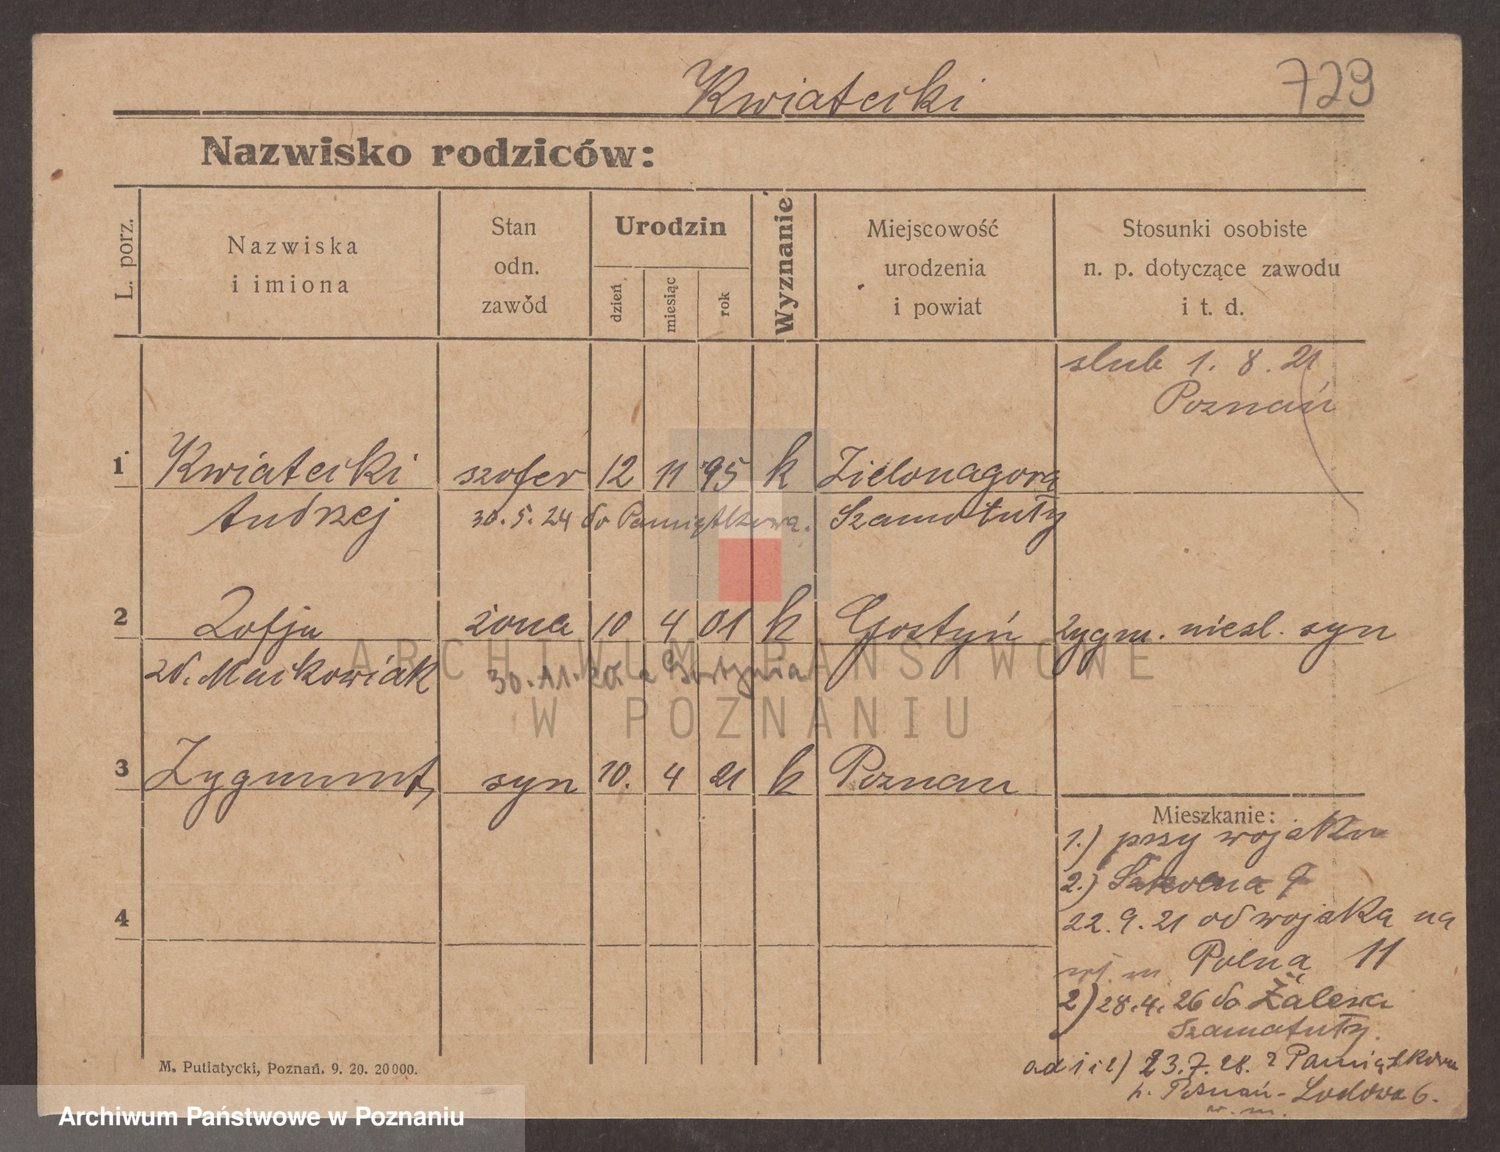 Kwiatecki
729
Nazwisko rodziców:
L. porz.
Nazwiska
i imiona
Stan
odn.
zawód
Urodzin
dzień
miesiąc
rok
Wyznanie
Miejscowość
urodzenia
i powiat
Stosunki osobiste
n. p. dotyczące zawodu
i t. d.
slub 1. 8. 21
Poznań
1 Kwiatecki szofer 12 11 95 k Zielonagora
Andrzej 30. 5. 24 do Pamiątkowa. Szamotuły
2 Zofja żona 10 4 01 k Gostyń Zygm. niesl. syn
zd. Maćkowiak 30. 11.
3 Zygmunt syn 10. 4 21 k Poznan
4
Mieszkanie:
1.) przy wojsku
2.)
22. 9. 21 od wojska na
Polna 11
2) 28. 4. 26 do
Szamotuły.
ad 1 i 2) 23. 7. 28. z Pamiątkowa
p. Poznań - Lodowa 6.
M. Putiatycki, Poznań. 9. 20. 20000.
ARCHIWUM PAŃSTWOWE
W POZNANIU
Archiwum Państwowe w Poznaniu